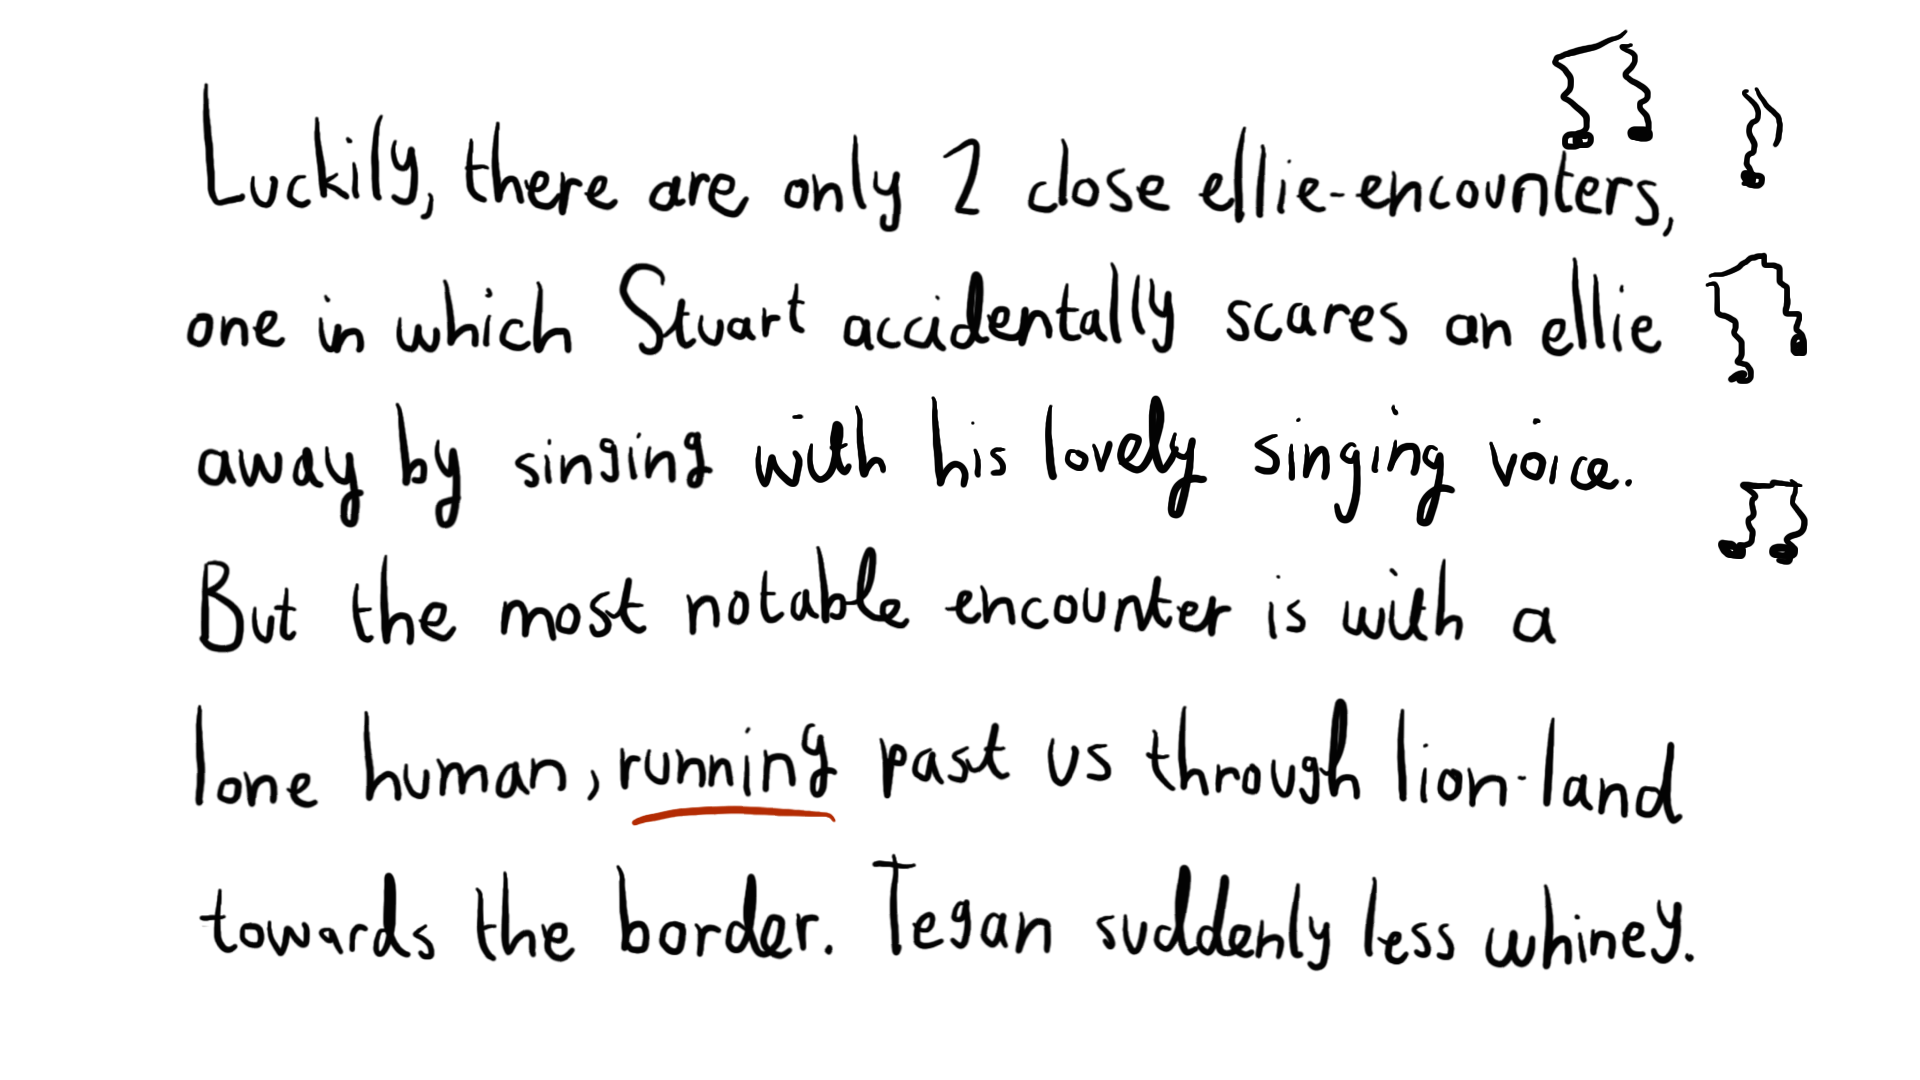 Luckily, there are only 2 close ellie-encounters,
one in which Stuart accidentally scares an ellie
away by singing with his lovely singing voice.
But the most notable encounter is with a
lone human, running past us through lion-land
towards the border. Tegan suddenly less whiney.